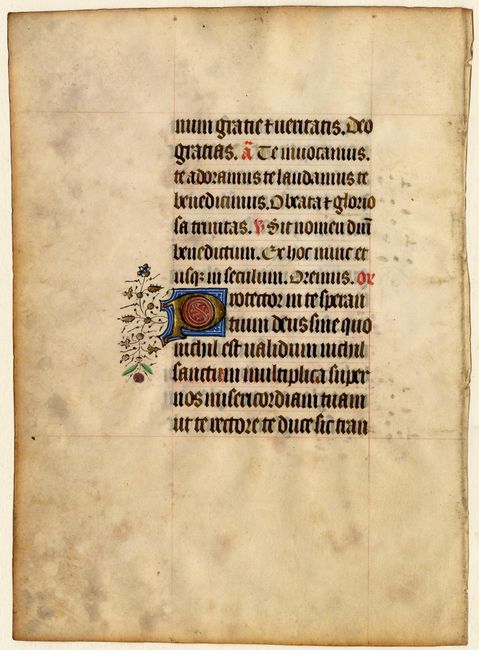 num gratie ⁊ veritatis. Deo
gratias. a̅ Te invocamus.
te adoramus te laudamus te
benedicimus. O beata ⁊ glorio
sa trinitas. V Sit nomen dm̅
benedictum. Ex hoc nunc et
usq; in seculum. Oremus. or
Protector in te speran
tium deus sine quo
nichil est validum nichil
sanctum multiplica super
nos misericordiam tuam
ut te rectore te duce sic tran